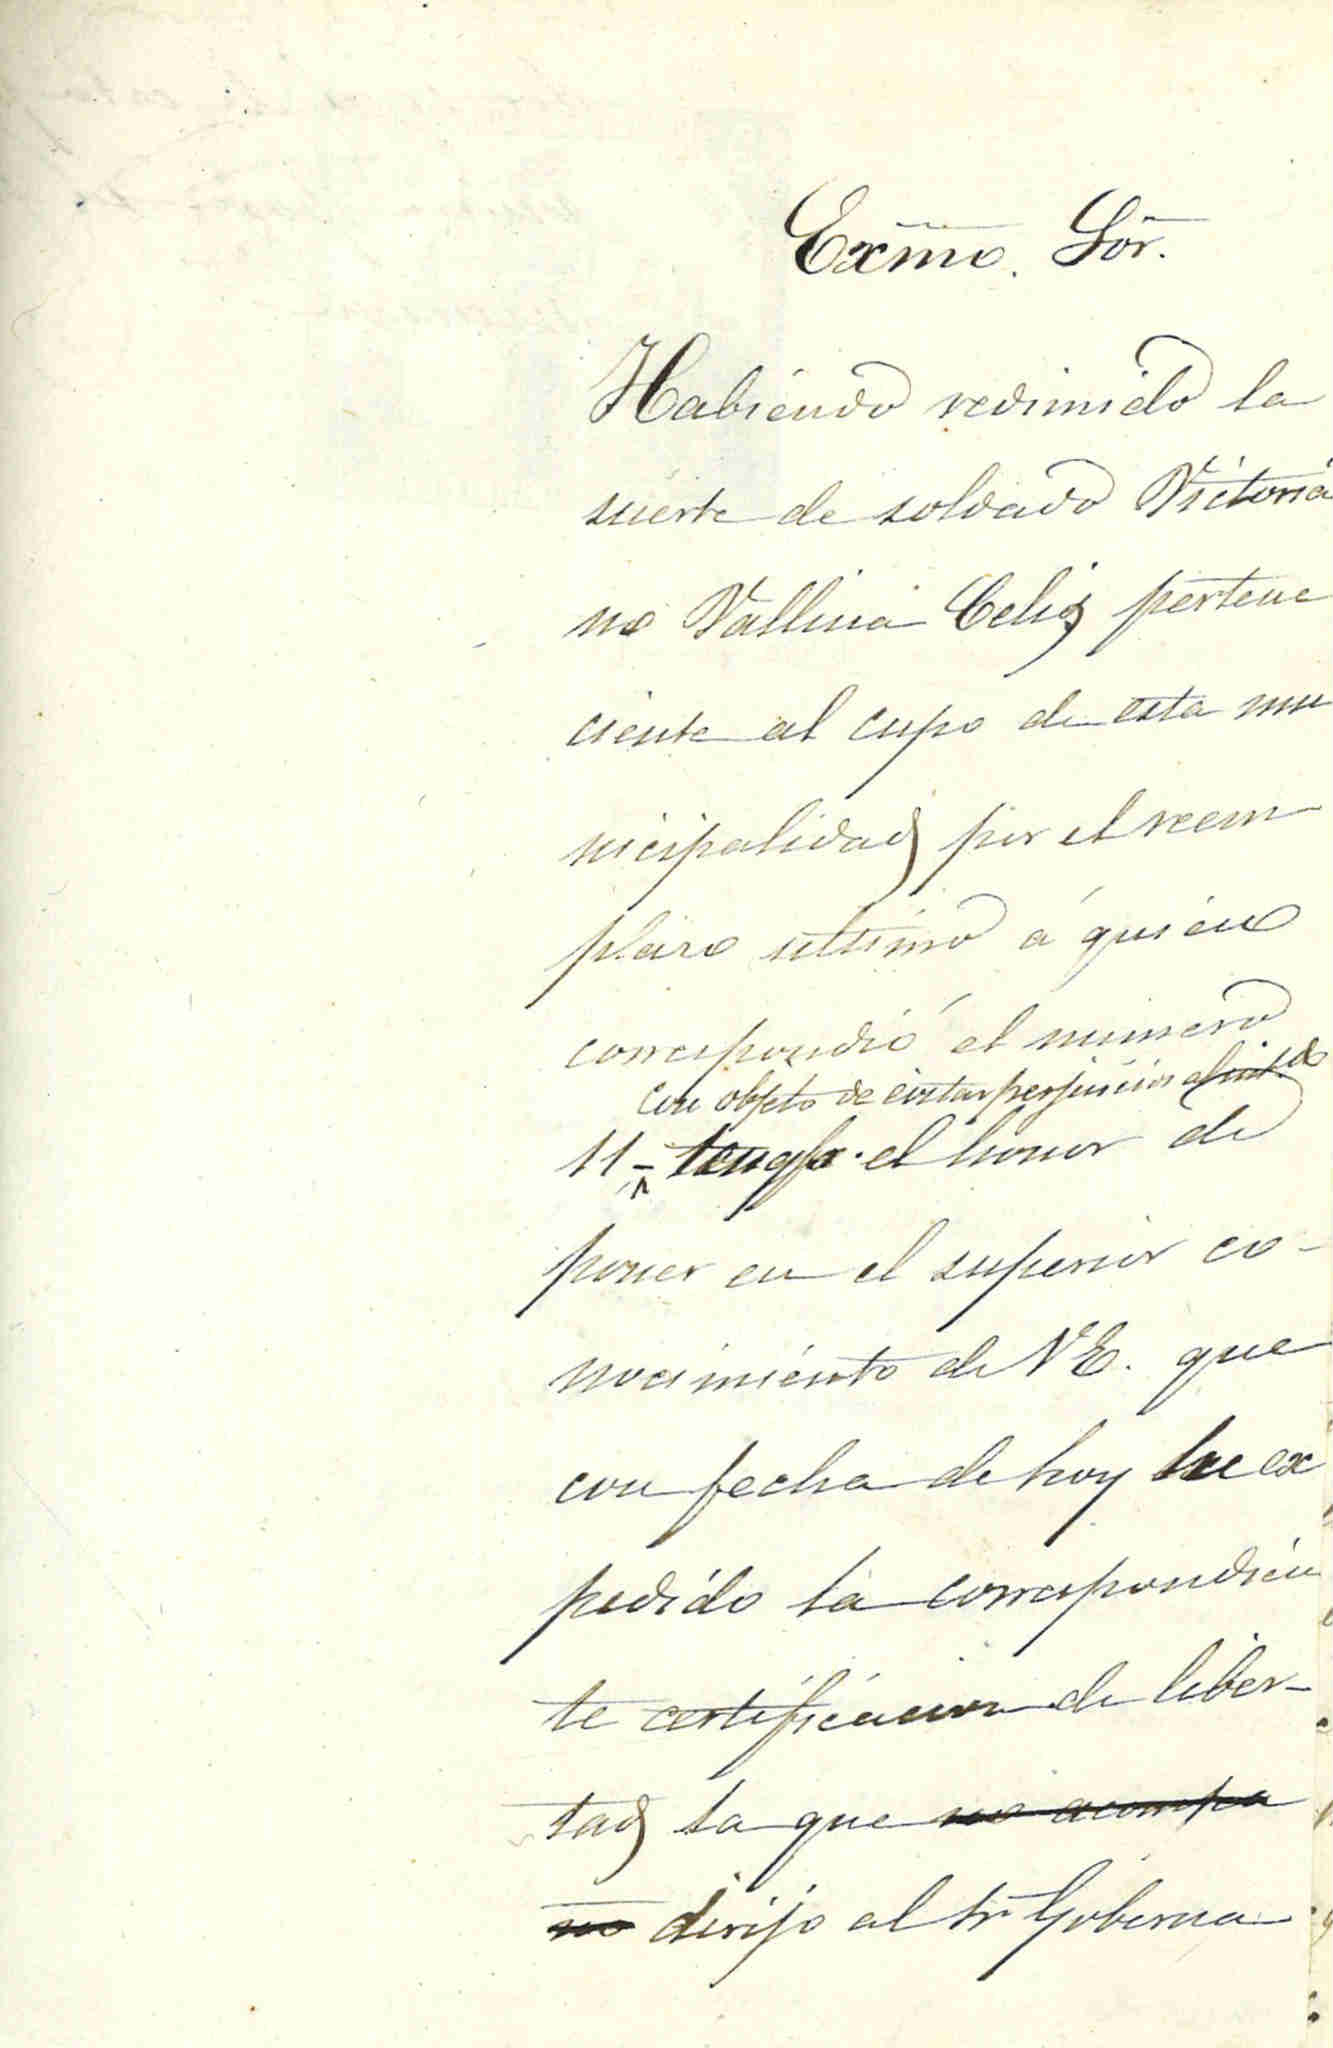 Exmo. Sor.
Habiendo redimido la
suerte de soldado Victoria
no Vallina Celis pertene
ciente al cupo de esta mu
nicipalidad por el reem
plazo ultimo á quien
correspondió el numero
con objeto de evitar perjuicios al
11 - tengo el honor de
poner en el superior co-
nocimiento de VE. que
con fecha de hoy he ex
pedido la correspondien
te certificacion de liber-
tad la que no acompa
no dirijo al Sr Goberna